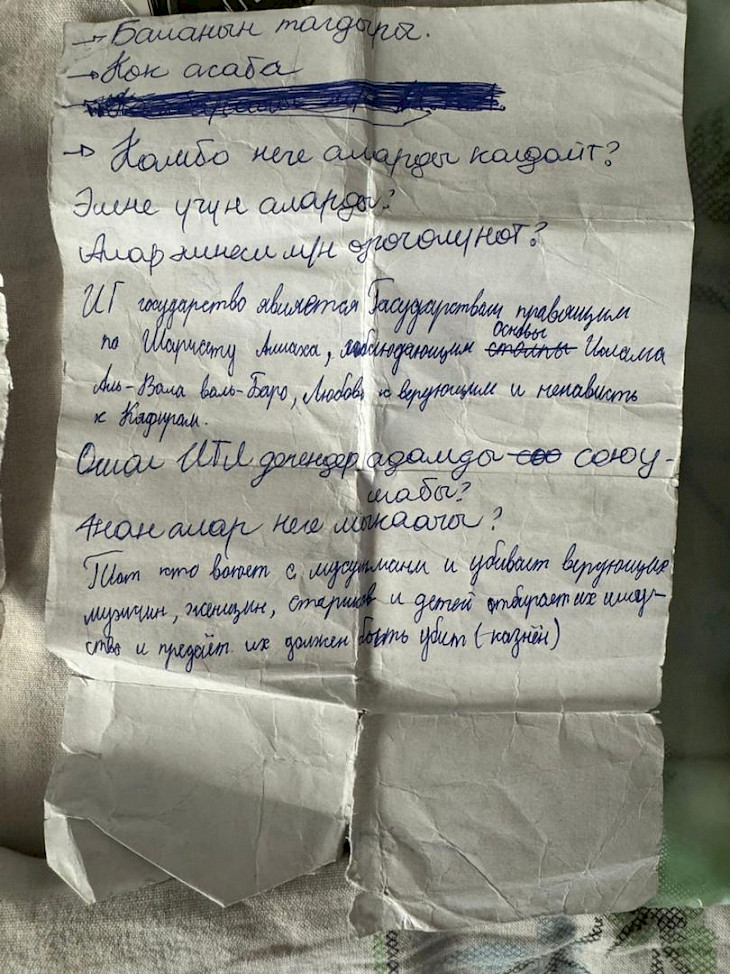 → Баланын тагдыры.
→ Кок асаба
→ Комбо неге аларды колдойт?
Эмне учун аларды?
Алар
ИГ государство является Гасударством правящим
по Шариату Аллаха, соблюдающим столпы Основы Ислама
Аль-Вала валь-Баро, Любовь к верующим и ненависть
к Кяфирам.
Ошал ИГИЛ дегендер адамды соо союу-
шабы?
Анан алар неге мыкаачы?
Тот кто воюет с мусулмани и убивает верующих
мужчин, женщин, стариков и детей отбирает их иму-
ство и предаёт их должен быть убит (-казнён)